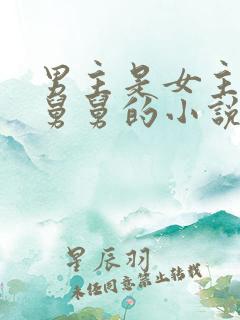 男主是女主
舅舅的小说
星辰羽
未经同意禁止转载